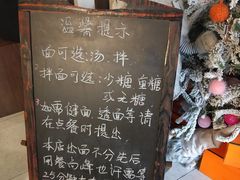 温馨提示
面可选:汤.拌
拌面可选:沙糖 蜜糖
或无糖
如需健面 透面等请
在点餐时提出
本店出面不分先后
用餐高峰也许需等
25分钟